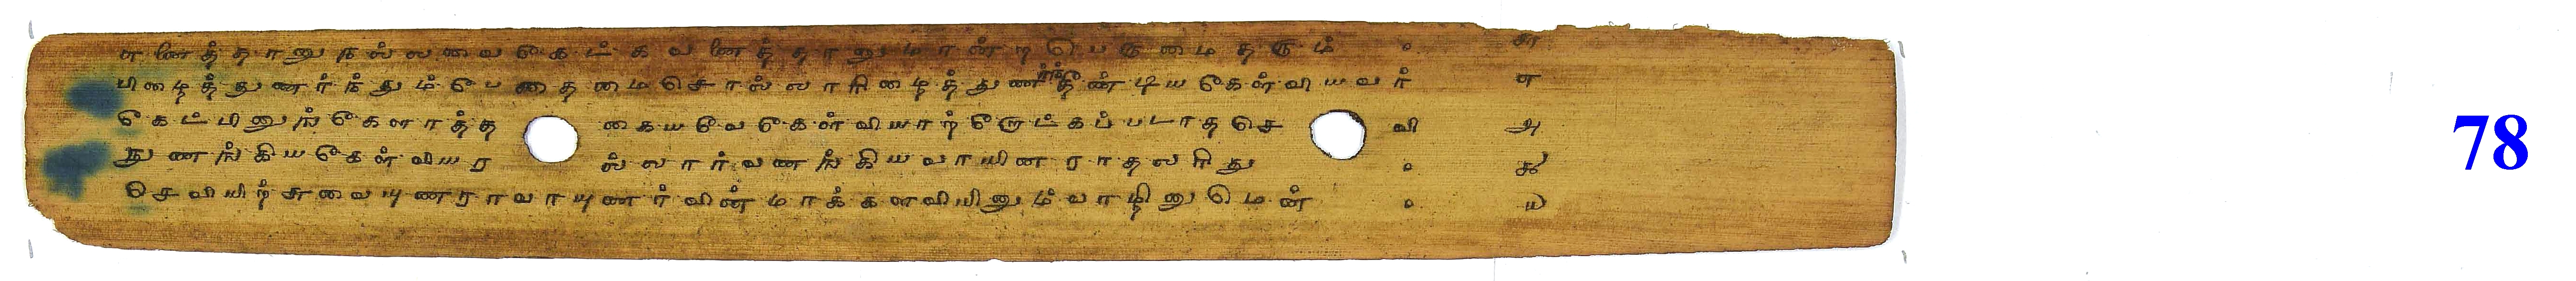 எனைத்தானுநல்லவைகேட்கவனைத்தானுமான்றபெருமைதரும் ௬
பிழைத்துணர்ந்தும்பேதைமைசொல்லாரிழைத்துணர்ந்தீண்டியகேள்வியவர் ௭
கேட்பினுங்கேளாத்தகையவேகேள்வியாற்றோட்கப்படாதசெவி ௮
நுணங்கியகேள்வியரல்லார்வணங்கியவாயினராதலரிது ௯
செவியிற்சுவையுணராவாயுணர்வின்மாக்களவியினும்வாழினுமென் ௰
78